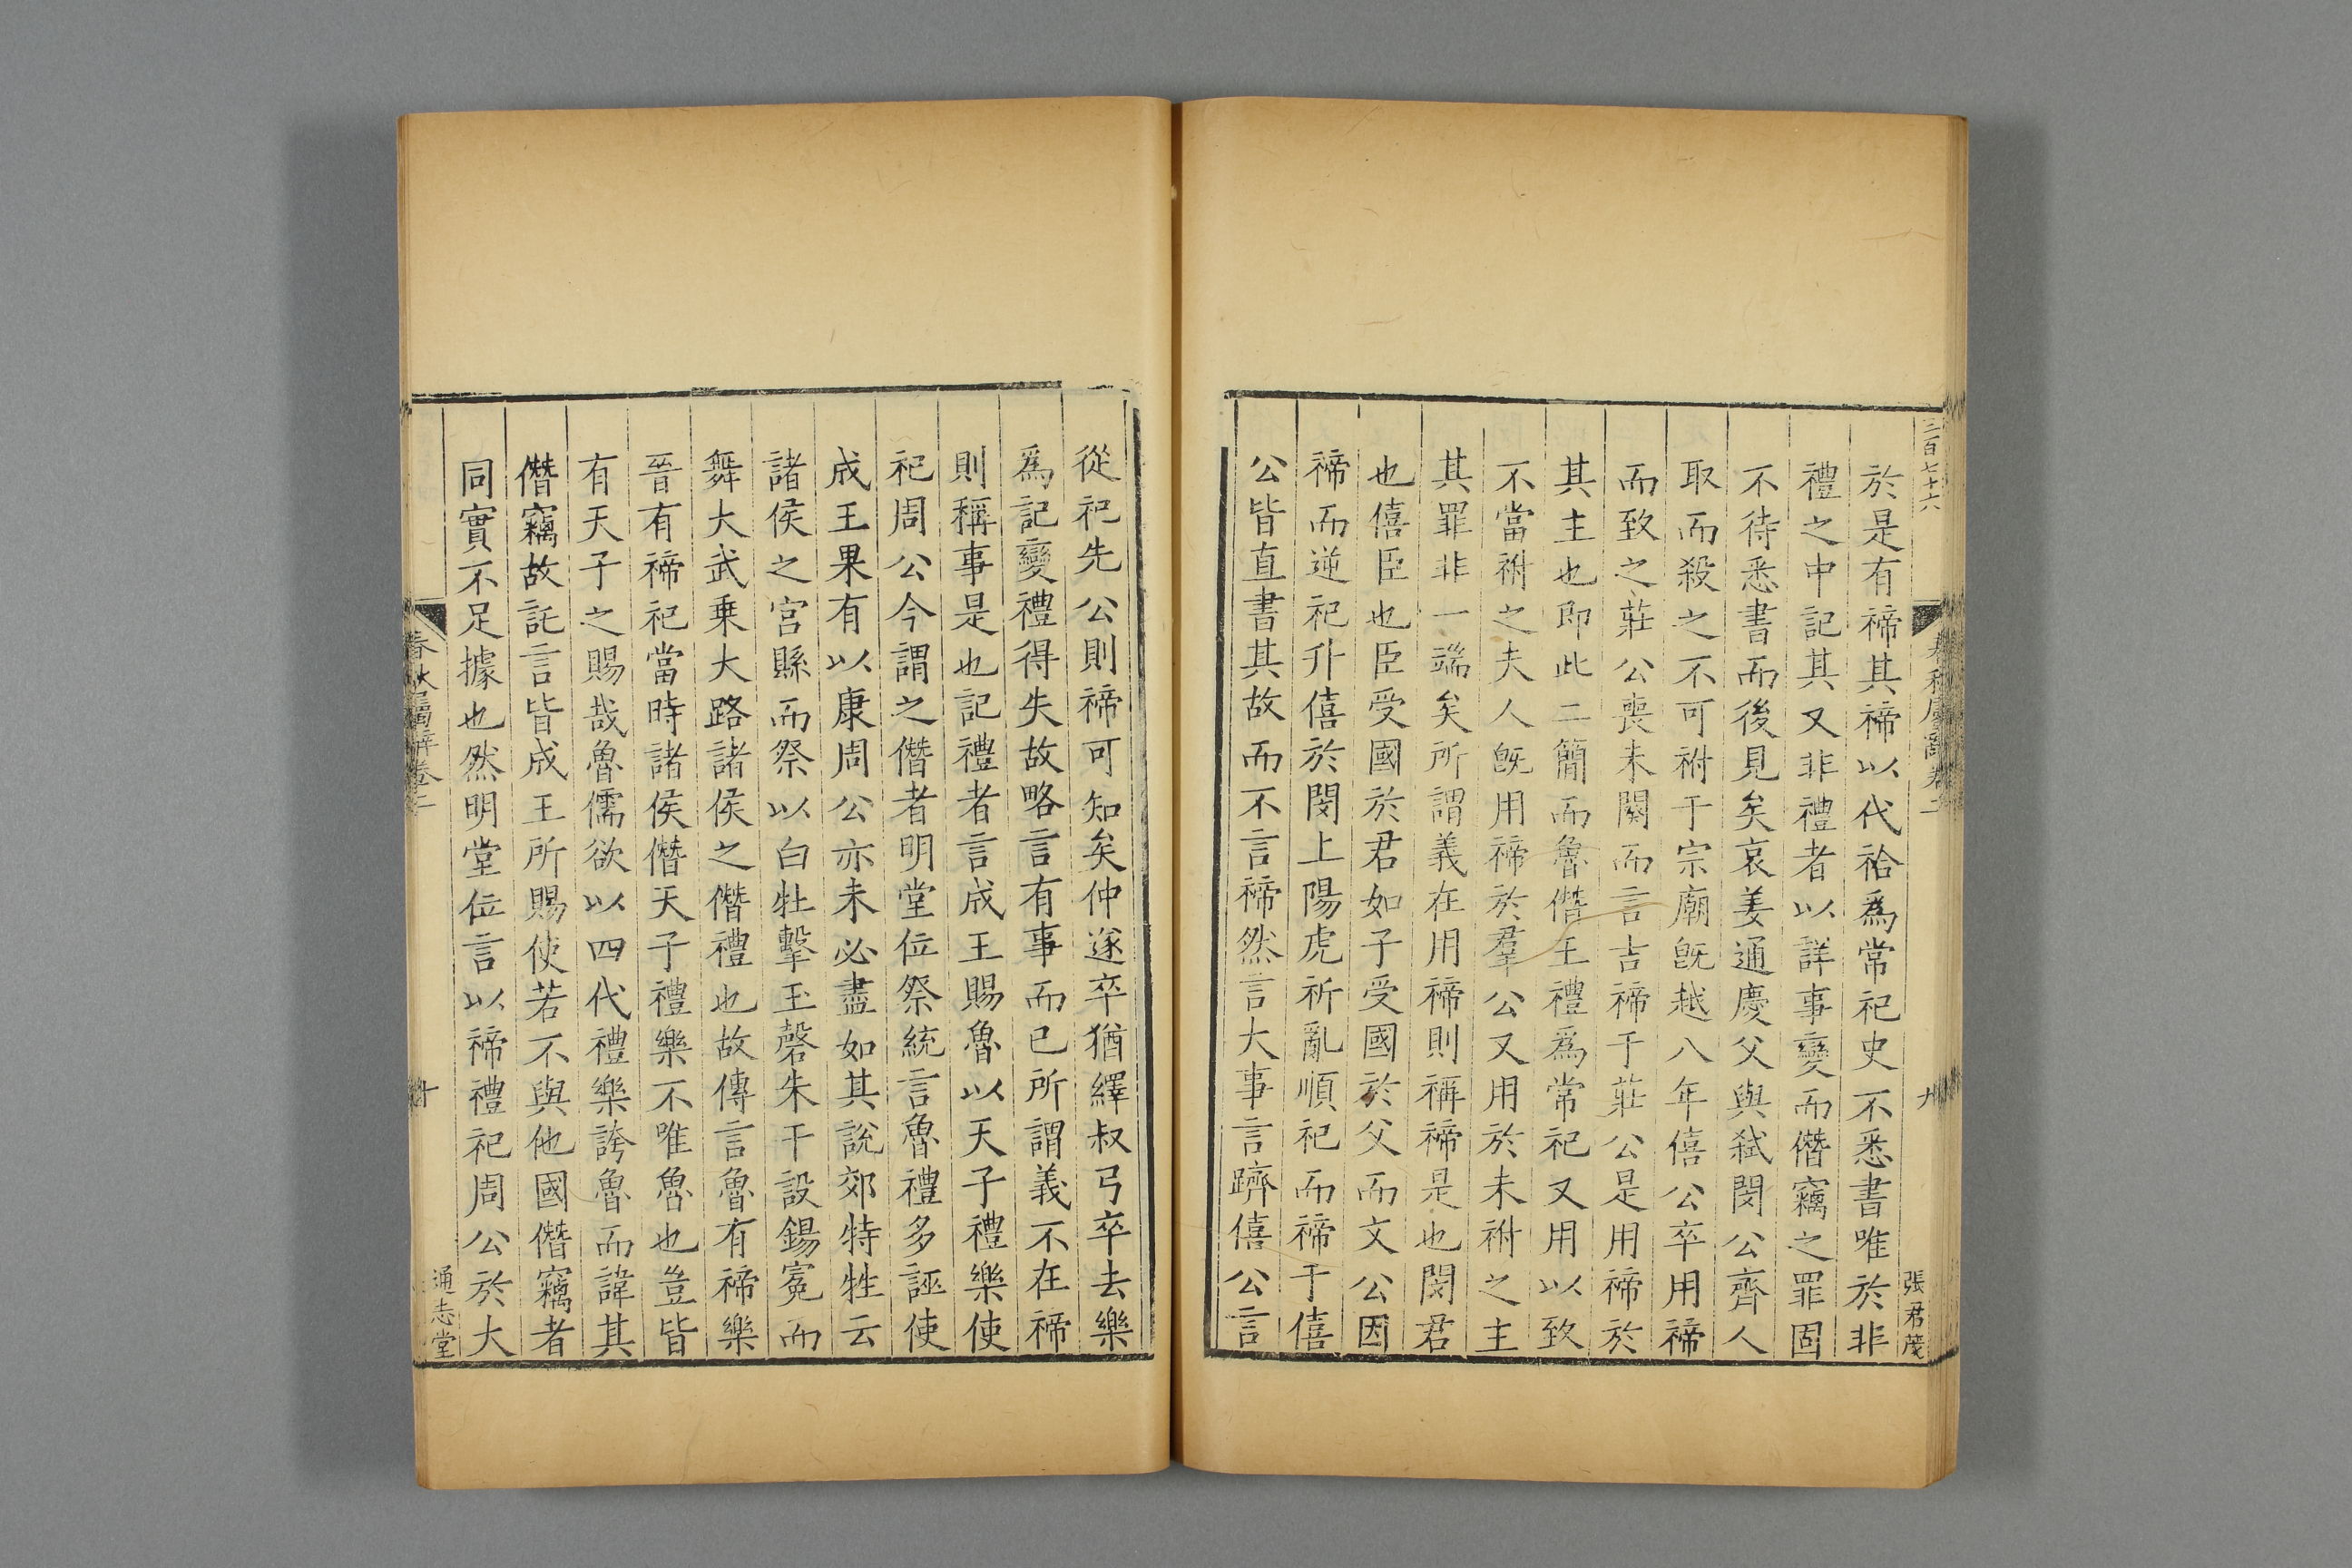 二百七十六
春秋屬辭卷二
九
張君茂
於是有禘其禘以代祫爲常祀史不悉書唯於非
禮之中記其又非禮者以詳事變而僭竊之罪固
不待悉書而後見矣哀姜通慶父與弑閔公齊人
取而殺之不可祔于宗廟旣越八年僖公卒用禘
而致之莊公喪未闋而言吉禘于莊公是用禘於
其主也即此二簡而魯僭王禮爲常祀又用以致
不當祔之夫人旣用禘於羣公又用於未祔之主
其罪非一端矣所謂義在用禘則稱禘是也閔君
也僖臣也臣受國於君如子受國於父而文公因
禘而逆祀升僖於閔上陽虎祈亂順祀而禘于僖
公皆直書其故而不言禘然言大事言躋僖公言
從祀先公則禘可知矣仲遂卒猶繹叔弓卒去樂
爲記變禮得失故略言有事而已所謂義不在禘
則稱事是也記禮者言成王賜魯以天子禮樂使
祀周公今謂之僭者明堂位祭統言魯禮多誣使
成王果有以康周公亦未必盡如其說郊特牲云
諸侯之宮縣而祭以白牡擊玉磬朱干設鍚冕而
舞大武乗大路諸侯之僭禮也故傳言魯有禘樂
晉有禘祀當時諸侯僭天子禮樂不唯魯也豈皆
有天子之賜哉魯儒欲以四代禮樂誇魯而諱其
僭竊故託言皆成王所賜使若不與他國僭竊者
同實不足據也然明堂位言以禘禮祀周公於大
春秋屬辭卷二
十
通志堂